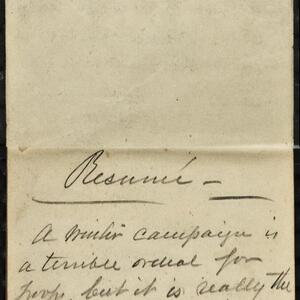 Resumé –
A winter campaign is
a terrible ordeal for
troops, but it is really the